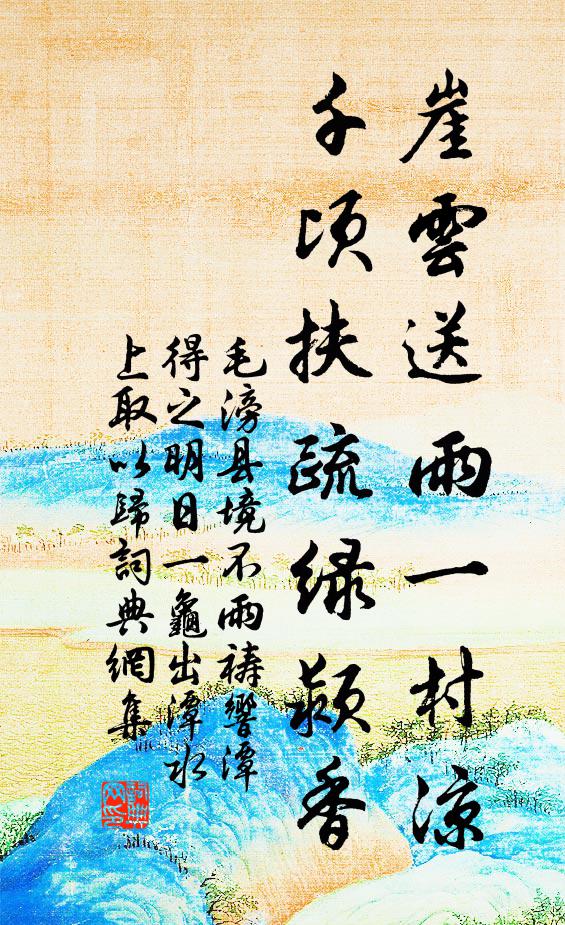 崖雲送雨一村涼
千頃扶疏绿颖香
毛滂县境不雨祷響潭
得之明日一龜出潭水
上取以歸詞典網集